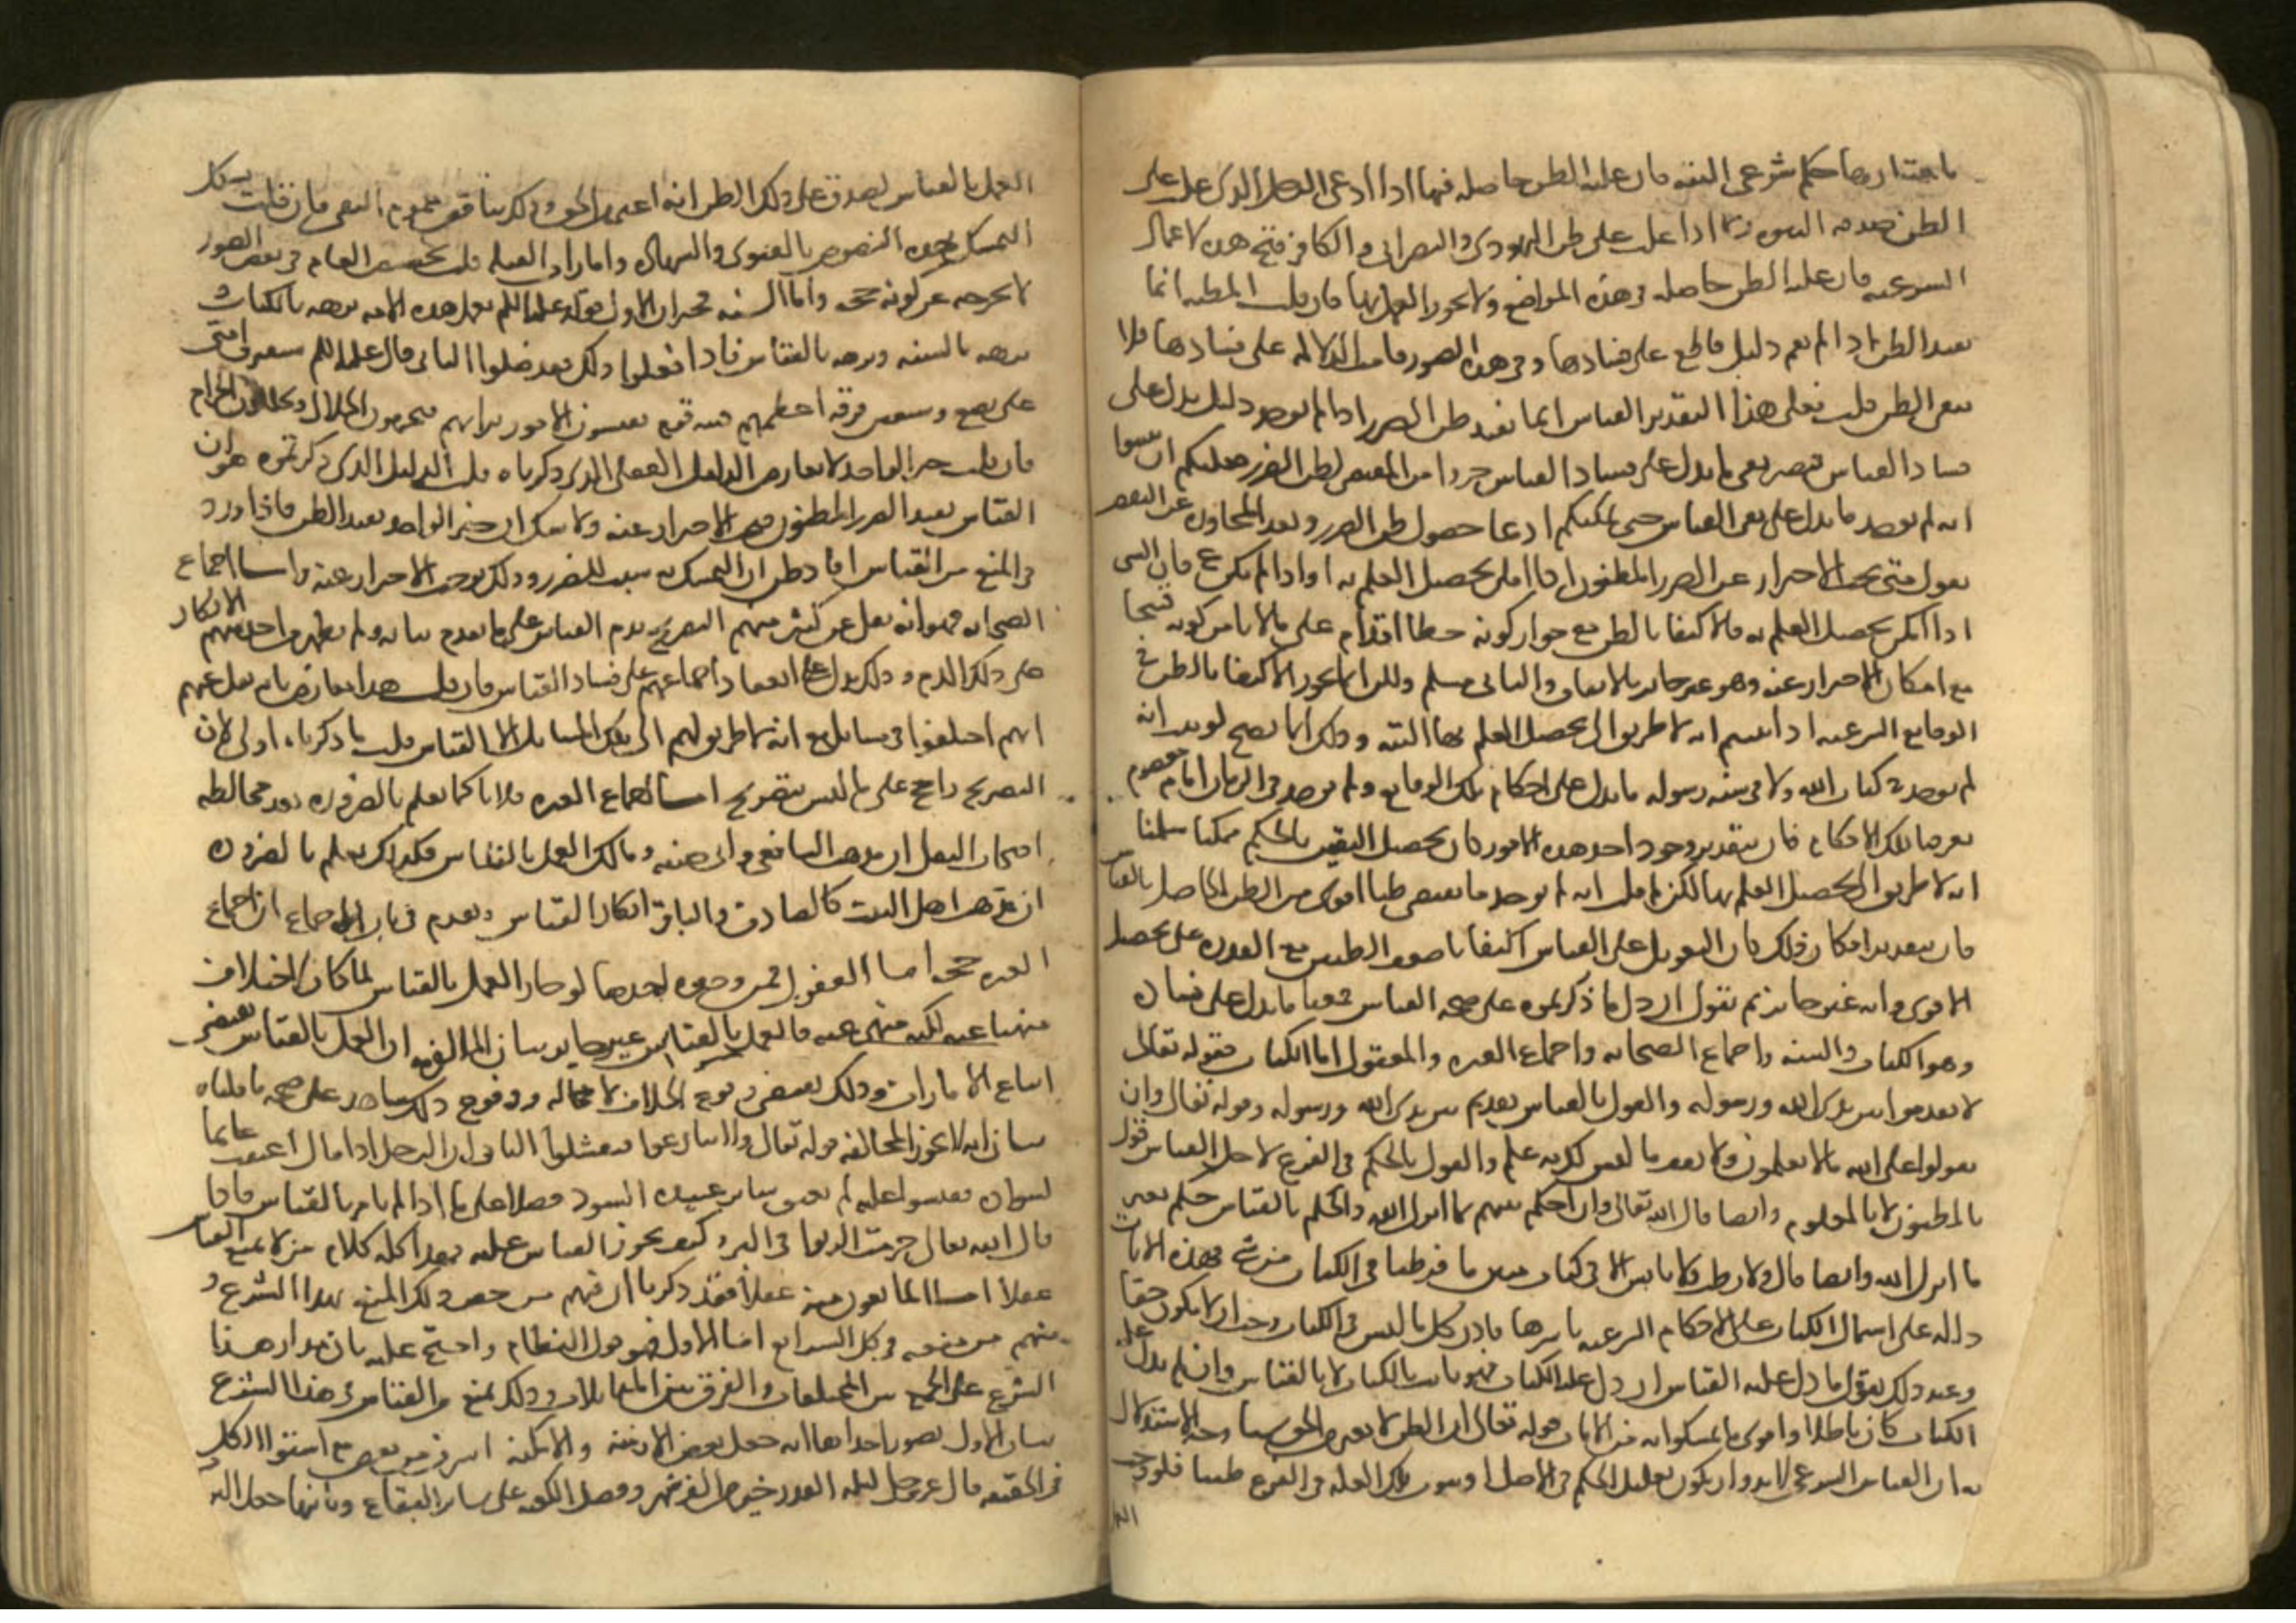 باعتبارها حكم شرعي البتة فان غلبة الظن حاصلة فيما اذا ادعى الرجل الذي غلب على
الظن صدقه النبوة وفيما اذا غلب على ظن اليهودي والنصراني والكافر قبح هذه الاعمال
الشرعية فان غلبة الظن حاصلة في هذه المواضع ولا يجوز العمل بها فان قلت المظنة انما
تفيد الظن اذا لم يقم دليل قاطع على فسادها وفي هذه الصور قامت الدلالة على فسادها فلا
يبقى الظن قلت فعلى هذا التقدير القياس انما يفيد ظن الضرر اذا لم يوجد دليل يدل على
فساد القياس فيصير نفي ما يدل على فساد القياس جزءا من المقتضي لظن الضرر فعليكم ان تبينوا
انه لم يوجد ما يدل على نفي القياس حتى يمكنكم ادعا حصول ظن الضرر وبعد المجاوزة عن النقض
نقول متى يجب الاحتراز عن الضرر المظنون اذا امكن تحصيل العلم به او اذا لم يكن ع فان النبي
اذا امكن تحصيل العلم به فالاكتفا بالظن مع جواز كونه خطا اقدام على ما لا يامن كونه قبيحا
مع امكان الاحتراز عنه وهو غير جايز بالاتفاق والثاني مسلم ولكن انما يجوز الاكتفا بالظن في
الوقايع الشرعية اذا بينتم انه لا طريق الى تحصيل العلم بها البتة وذلك انما يصح لو ثبت انه
لم يوجد في كتاب الله ولا في سنة رسوله ما يدل على احكام تلك الوقايع ولم يوجد في الزمان امام معصوم
يعرفنا تلك الاحكام فان بتقدير وجود احد هذه الامور كان تحصيل اليقين بالحكم ممكنا سلمنا
انه لا طريق الى تحصيل العلم بها لكن لم قلت انه لم يوجد ما يقتضي ظنا اقوى من الظن الحاصل بالقياس
فان بتقدير امكان ذلك كان التعويل على القياس اكتفا باضعف الظنين مع القدرة على تحصيل
الاقوى وانه غير جايز ثم نقول ان دل ما ذكرتموه على صحة القياس فمعنا ما يدل على فساده
وهو الكتاب والسنة واجماع الصحابة واجماع العترة والمعقول اما الكتاب فقوله تعالى
لا تقدموا بين يدي الله ورسوله والقول بالقياس تقديم بين يدي الله ورسوله وقوله تعالى وان
تقولوا على الله ما لا تعلمون ولا تقف ما ليس لك به علم والقول بالحكم في الفرع لاجل القياس قول
بالمظنون لا بالمعلوم وايضا قال الله تعالى وان احكم بينهم بما انزل الله والحكم بالقياس حكم بغير
ما انزل الله وايضا قال ولا رطب ولا يابس الا في كتاب مبين ما فرطنا في الكتاب من شي فهذه الايات
دالة على اشتمال الكتاب على الاحكام الشرعية باسرها فاذن كل ما ليس في الكتاب وجب ان لا يكون حقا
وعند ذلك نقول ما دل عليه القياس ان دل عليه الكتاب فهو ثابت بالكتاب لا بالقياس وان لم يدل عليه
الكتاب كان باطلا واقوى ما تمسكوا به من الايات قوله تعالى ان الظن لا يغني من الحق شيئا وجه الاستدلال
به ان القياس الشرعي لا بد وان يكون تعليل الحكم في الاصل او ثبوت تلك العلة في الفرع ظنيا فلو وجب
العمل بالقياس لصدق على ذلك الظن انه اغنى من الحق وذلك يناقض عموم النفي فان قلت يشكل
التمسك بهذه النصوص بالفتوى والشهادة وامارات القبلة قلت تخصيص العام في بعض الصور
لا يخرجه عن كونه حجة واما السنة فخبران الاول قوله عليه السلم تعمل هذه الامة برهة بالكتاب و
برهة بالسنة وبرهة بالقياس فاذا فعلوا ذلك فقد ضلوا الثاني قال عليه السلم ستفترق امتي
على بضع وسبعين فرقة اعظمهم فتنة قوم يقيسون الامور برايهم فيحرمون الحلال ويحللون الحرام
فان قلت خبر الواحد لا يعارض الدليل العقلي الذي ذكرناه قلت الدليل الذي ذكرتموه هو ان
القياس يفيد الضرر المظنون فيجب الاحتراز عنه ولا شك ان خبر الواحد يفيد الظن فاذا ورد
في المنع من القياس افاد ظن ان التمسك به سبب للضرر وذلك يوجب الاحتراز عنه واما اجماع
الصحابة فهو انه نقل عن كثير منهم التصريح بذم القياس على ما تقدم بيانه ولم يظهر من احد منهم الانكار
على ذلك الذم وذلك يدل على انعقاد اجماعهم على فساد القياس فان قلت هذا معارض بانه نقل عنهم
انهم اختلفوا في مسايل مع انه لا طريق لهم الى تلك المسايل الا القياس قلت ما ذكرناه اولى لان
التصريح راجح على ما ليس بتصريح اما اجماع العترة فلانا كما نعلم بالضرورة بعد مخالطة
اصحاب النقل ان مذهب الشافعي وابي حنيفة ومالك العمل بالقياس فكذلك نعلم بالضرورة
ان مذهب اهل البيت كالصادق والباقر انكار القياس وتقدم في باب الاجماع ان اجماع
العترة حجة اما المعقول فمن وجوه احدها لو جاز العمل بالقياس لما كان الاختلاف
منهيا عنه لكنه منهي عنه فالعمل بالقياس غير جايز بيان الملازمة ان العمل بالقياس يقتضي
اتباع الامارات وذلك يقتضي وقوع الخلاف لا محالة ووقوع ذلك شاهد على صحة ما قلناه
بيان انه لا يجوز المخالفة قوله تعالى ولا تنازعوا فتفشلوا الثاني ان الرجل اذا قال اعتقت غانما
لسواده فقيسوا عليه لم يعتق سائر عبيده السود فضلا على ما اذا لم يامر بالقياس فاذا
قال الله تعالى حرمت الربوا في البر كيف يجوز القياس عليه فهذا كله كلام من لا يمنع القياس
عقلا اما المانعون منه عقلا فقد ذكرنا ان فيهم من خص ذلك المنع بهذا الشرع و
منهم من منعه في كل الشرايع اما الاول فهو قول النظام واحتج عليه بان مدار هذا
الشرع على الجمع بين المختلفات والفرق بين المتماثلات وذلك يمنع من القياس في هذا الشرع
بيان الاول بصور احداها انه جعل بعض الازمنة والامكنة اشرف من بعض مع استواء الكل
في الحقيقة قال عز وجل ليلة القدر خير من الف شهر وفضل الكعبة على سائر البقاع وثانيها جعل الترا